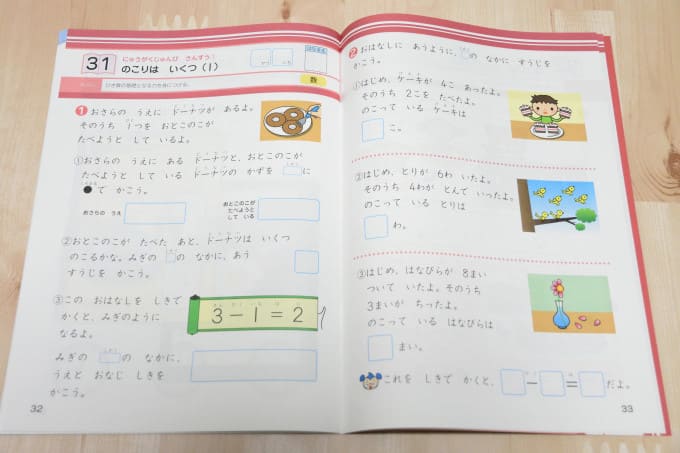 31
にゅうがくじゅんび さんすう①
のこりは いくつ(1)
数
ひき算の基礎となる力を身につける。
① おさらの うえに ドーナツが あるよ。
そのうち 1つを おとこのこが
たべようと して いるよ。
①おさらの うえに ある ドーナツと、おとこのこが
たべようと して いる ドーナツの かずを に
●で かこう。
おさらの うえ
おとこのこが
たべようと
して いる
②おとこのこが たべた あと、ドーナツは いくつ
のこるかな。みぎの の なかに、あう
すうじを かこう。
③この おはなしを しきで
かくと、みぎのように
なるよ。
3-1=2
みぎの の なかに、
うえと おなじ しきを
かこう。
32
② おはなしに あうように、 の なかに すうじを
かこう。
①はじめ、ケーキが 4こ あったよ。
そのうち 2こを たべたよ。
のこって いる ケーキは
こ。
②はじめ、とりが 6わ いたよ。
そのうち 4わが とんで いったよ。
のこって いる とりは
わ。
③はじめ、はなびらが 8まい
ついて いたよ。そのうち
3まいが ちったよ。
のこって いる はなびらは
まい。
これを しきで かくと、 - = だよ。
33